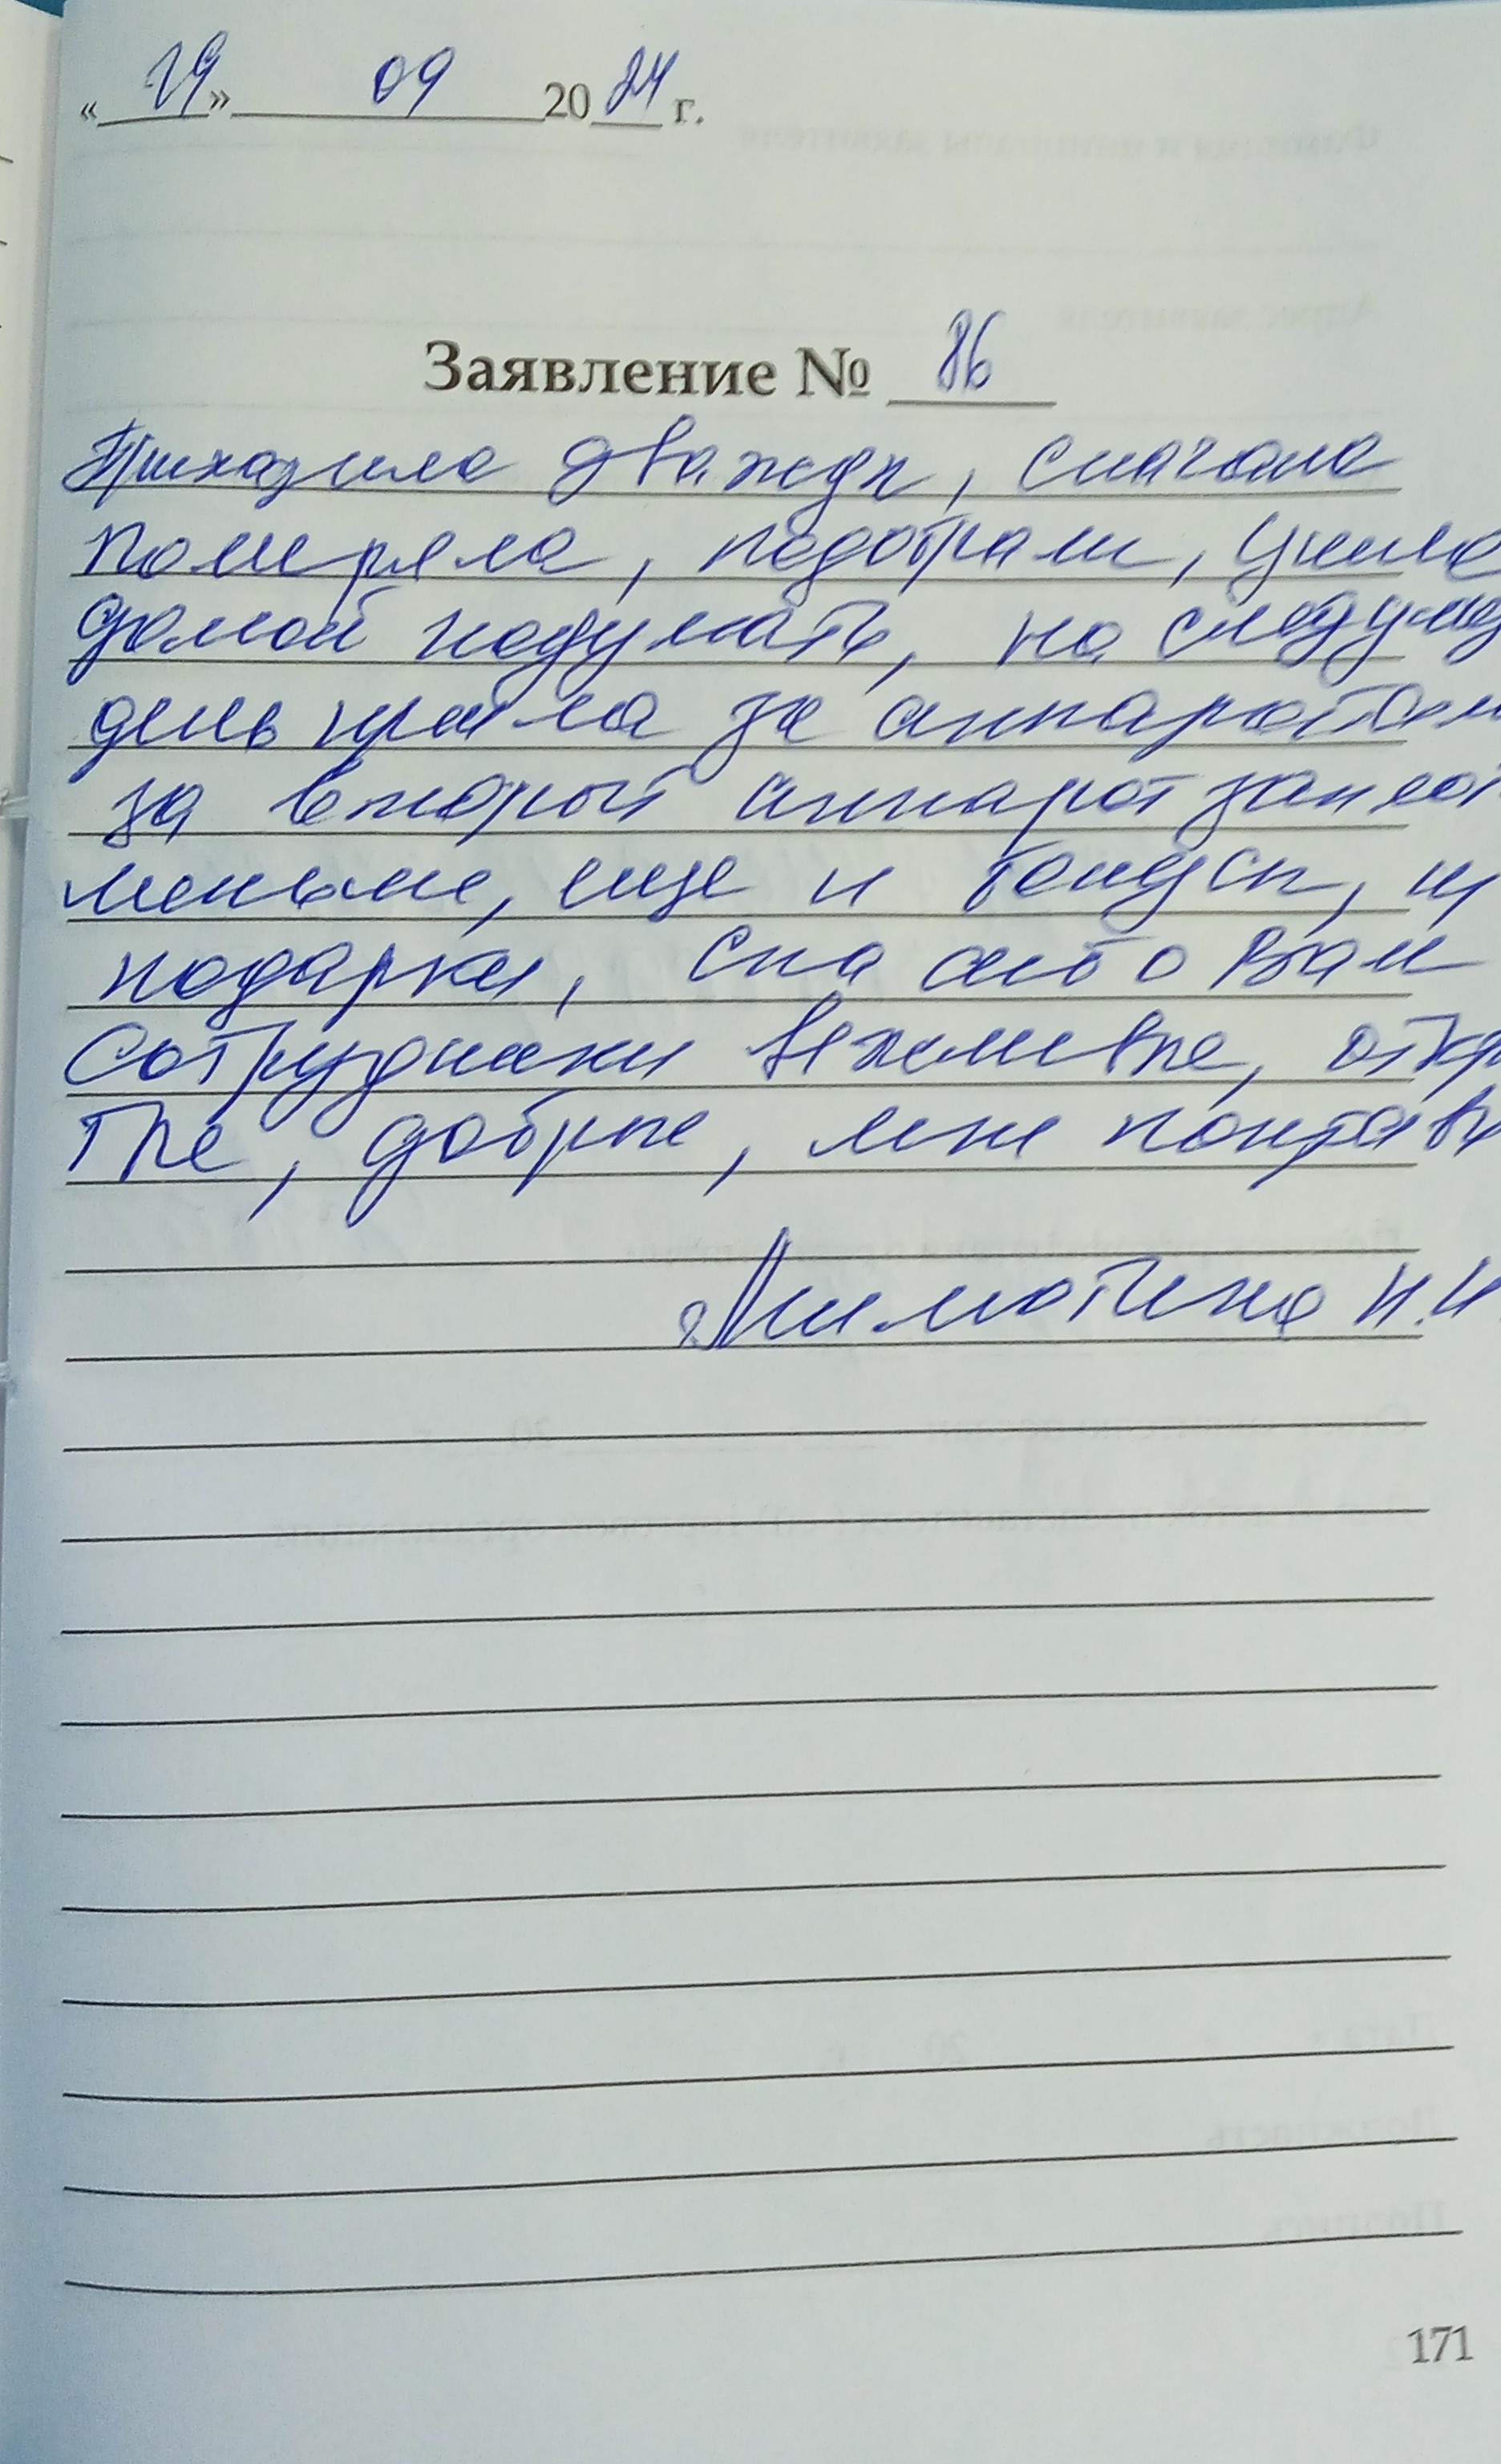 « 29 » 09 20 24 г.
Заявление № 86
Приходила дважды, сначала
померяла, подобрали, ушла
домой подумать, на следующ
день пришла за аппаратам
за второй аппарат заплат
меньше, еще и бонусы, и
подарки, спасибо Вам
Сотрудники вежливые, откры
тые, добрые, мне понрави
Лимотина Н.И.
171